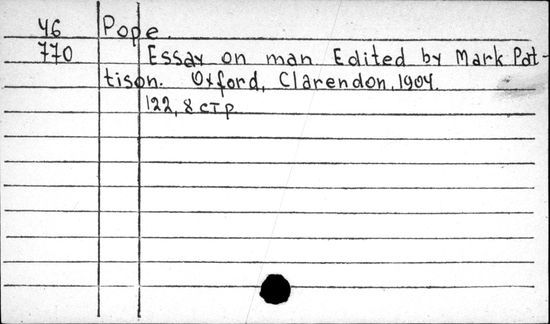 46 Pope.
770 Essay on man Edited by Mark Pat-
tison. Oxford, Clarendon, 1904.
122, 8 стр.